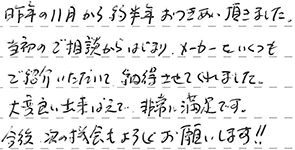 昨年の11月から約半年おつきあい頂きました。
当初のご相談からはじまり、メーカーもいくつも
ご紹介いただいて納得させてくれました。
大変良い出来ばえで、非常に満足です。
今後、次の機会もよろしくお願いします!!